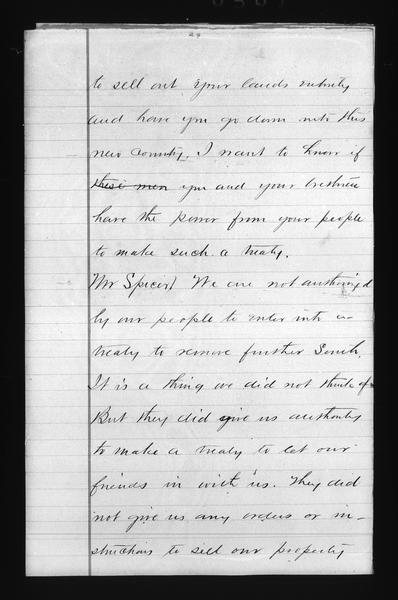 to sell out your lands entirely
and have you go down into this
new Country. I want to know if
these men you and your brethren
have the power from your people
to make such a treaty.
Mr Spicer) We are not authorized
by our people to enter into a
treaty to remove further South,
It is a thing we did not think of
But they did give us authority
to make a treaty to let our
friends in with us. They did
not give us any orders or in-
structions to sell our property